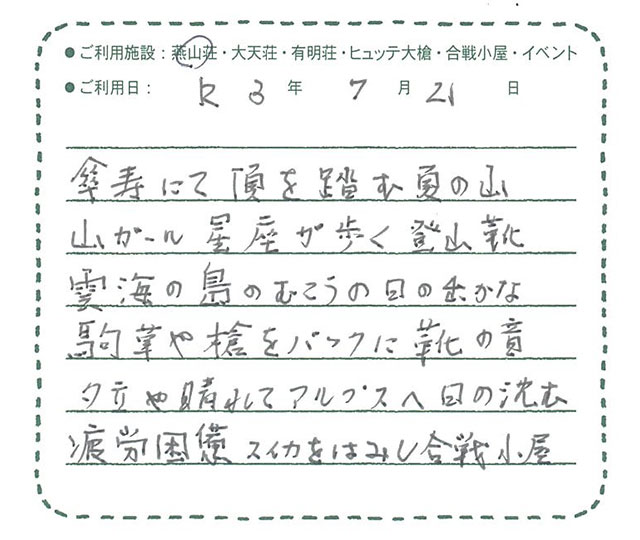 ●ご利用施設：燕山荘・大天荘・有明荘・ヒュッテ大槍・合戦小屋・イベント
●ご利用日： R3年 7月21日
傘寿にて頂を踏む夏の山
山ガール星座が歩く登山靴
雲海の島のむこうの日の出かな
駒草や槍をバックに靴の音
夕立や晴れてアルプスへ日の沈む
疲労困憊スイカをはみし合戦小屋